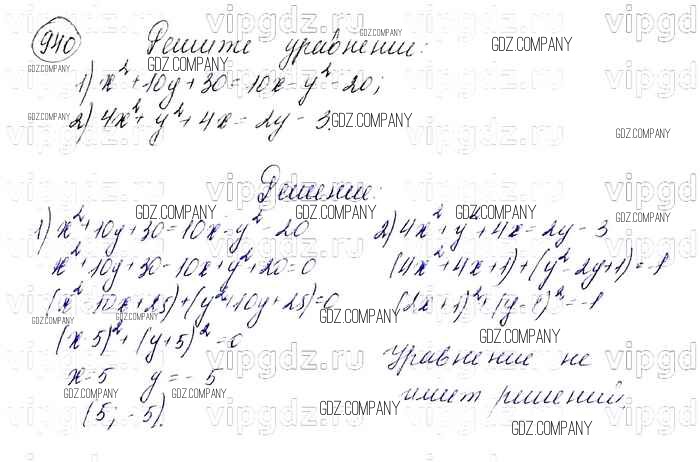 940
Решите уравнение:
1) x² + 10y + 30 = 10x - y² - 20;
2) 4x² + y² + 4x = 2y - 3.
Решение:
1) x² + 10y + 30 = 10x - y² - 20
x² + 10y + 30 - 10x + y² + 20 = 0
(x² - 10x + 25) + (y² + 10y + 25) = 0
(x - 5)² + (y + 5)² = 0
x = 5 y = -5
(5; -5).
2) 4x² + y² + 4x = 2y - 3
(4x² + 4x + 1) + (y² - 2y + 1) = -1
(2x + 1)² + (y - 1)² = -1
Уравнение не
имеет решений.
GDZ.COMPANY
vipgdz.ru